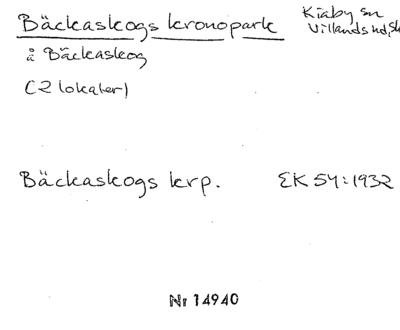 Bäckaskogs kronopark
Kiaby sn
Villands hd, Sk
å Bäckaskog
(2 lokaler)
Bäckaskogs krp. EK 54:1932
Nr 14940